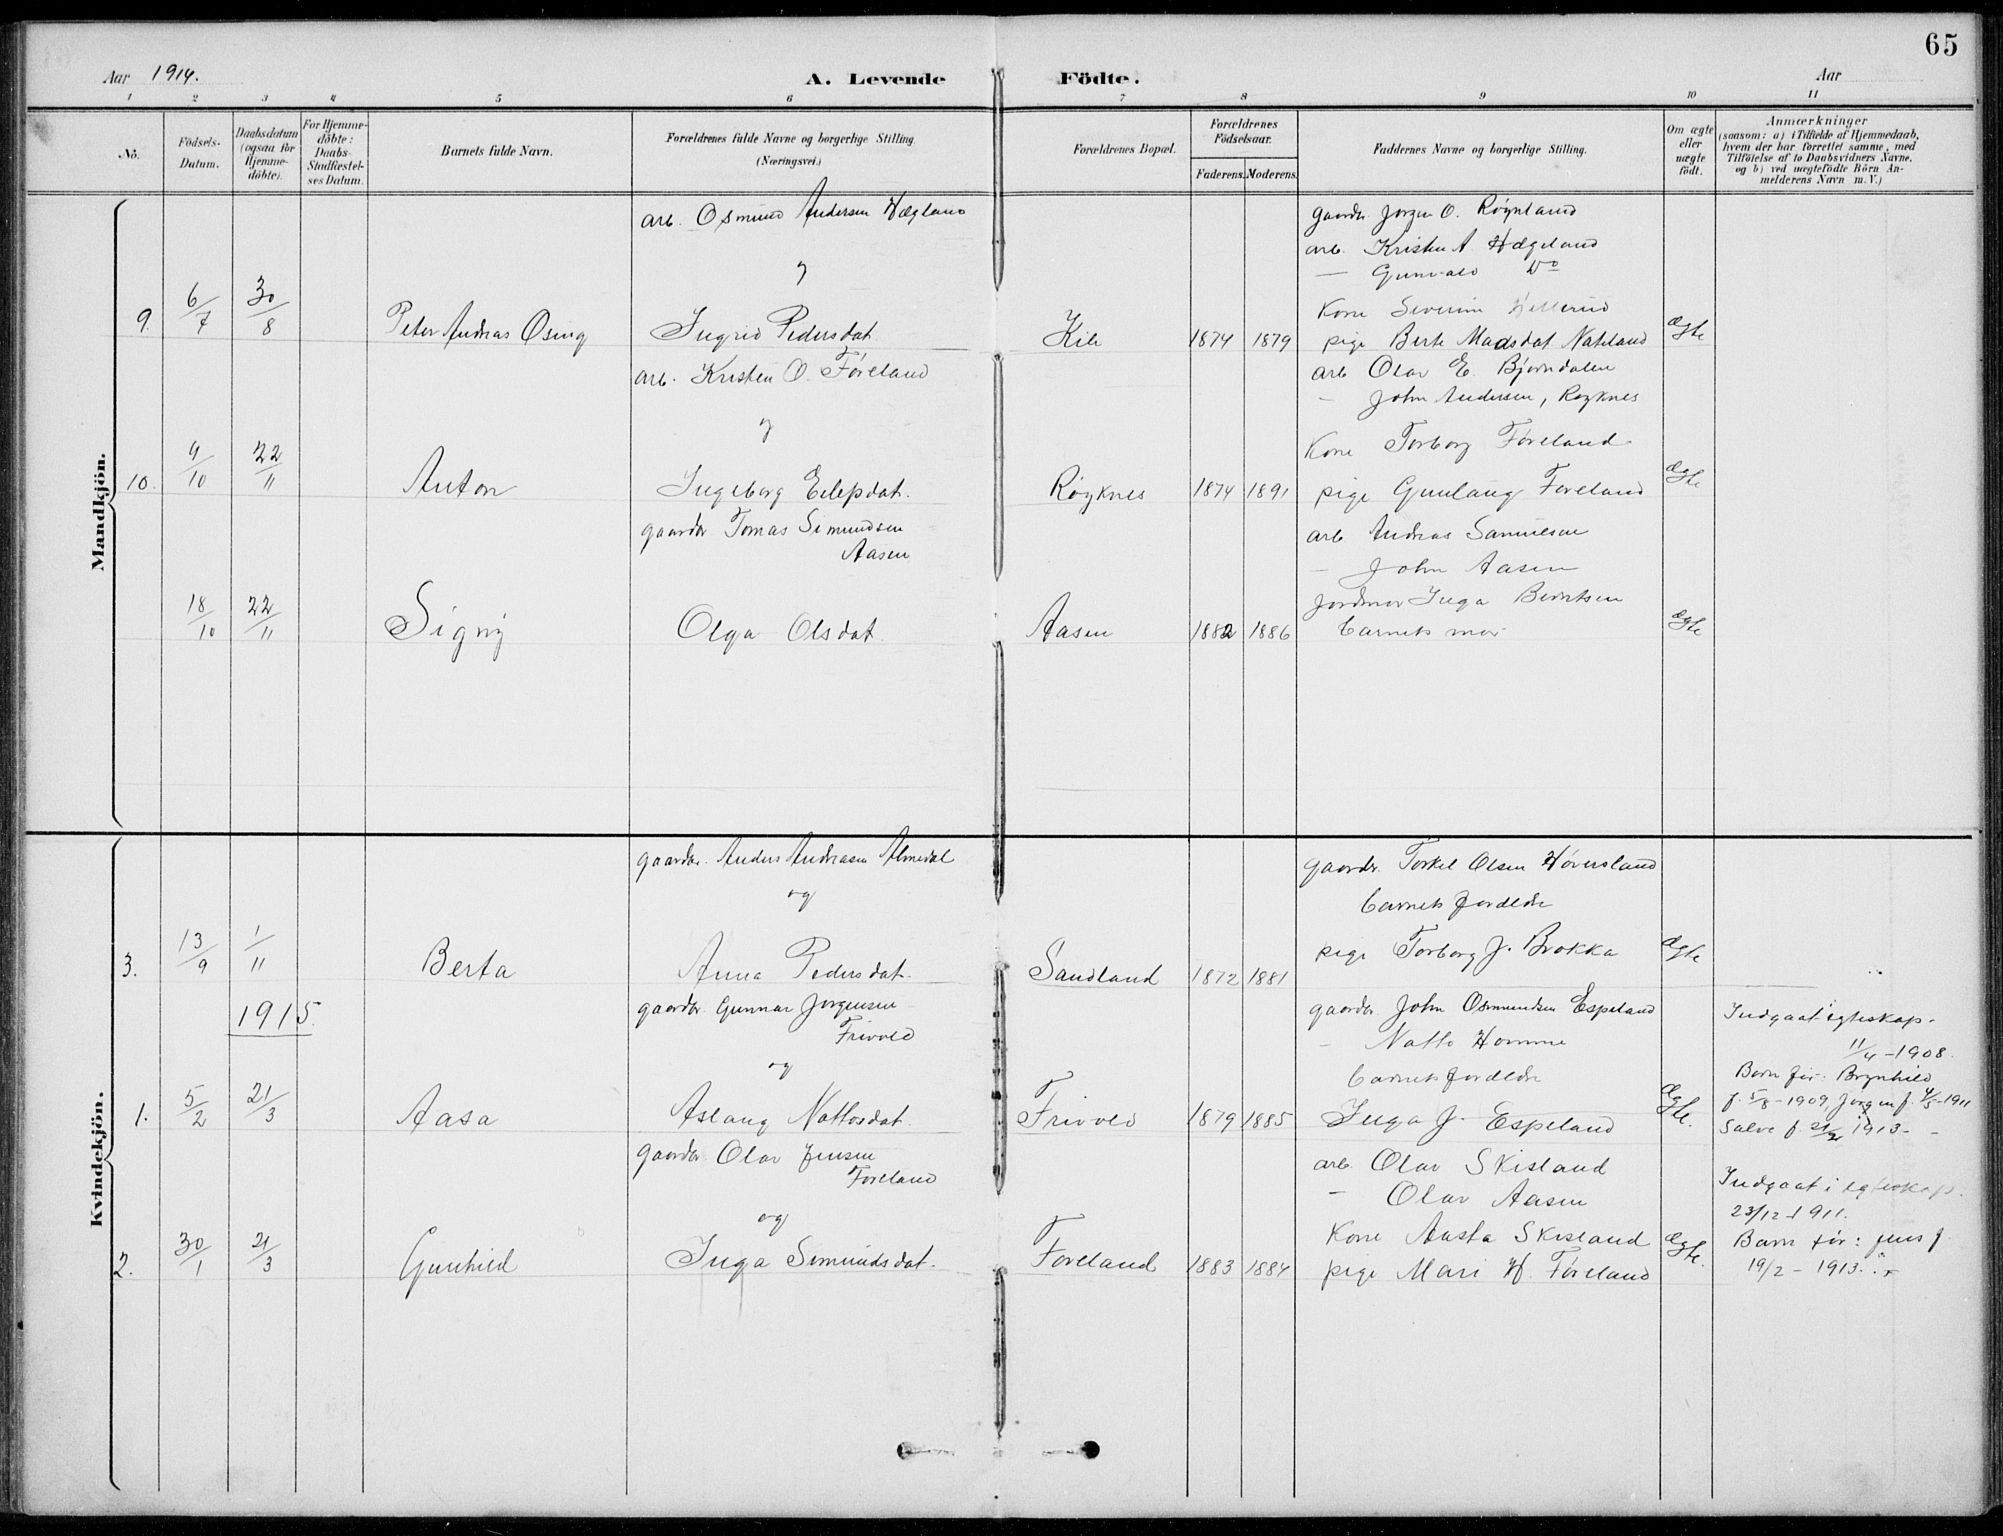 65
Aar 1914.
A. Levende Födte.
Aar
1 2 3 4 5 6 7 8 9 10 11
No.
Födsels-Datum.
Daabsdatum (ogsaa for Hjemme-döbte).
For Hjemme-döbte: Daabs-Stadfæstel-ses Datum.
Barnets fulde Navn.
Forældrenes fulde Navne og borgerlige Stilling. (Næringsvei.)
Forældrenes Bopæl.
Forældrenes Födselsaar.
Faderens. Moderens.
Faddernes Navne og borgerlige Stilling.
Om ægte eller uægte födt.
Anmærkninger
(saasom: a) i Tilfælde af Hjemmedaab, hvem der har forrettet samme, med Tilföielse af to Daabsvidners Navne, og b) ved uægtefödte Börn An-melderens Navn m. V.)
Mandkjön.
arb. Osmund Andersen Hægland
og
9. 6/7 30/8 Peter Andreas Osing Ingrid Pedersdat. Kile 1874 1879
gaardbr. Jørgen O. Røynland
arb. Kristen A. Hægeland
— Gunvald Do
Kone Severine
pige Berte Madsdat Nateland ægte
arb. Kristen O. Føreland
og
10. 9/10 22/11 Anton Ingeborg Eilepdat. Røyknes 1874 1891
arb Olav E. Bjørndalen
- John Andersen, Røyknes
Kone Torborg Føreland
pige Gunlaug Føreland ægte
gaardbr Tomas Simundsen
Aasen
18/10 22/11 Signy Olga Olsdat. Aasen 1882 1886
arb Andreas Samuelsen
- John Aasen
Jordmor Inga Berntsen
barnets mor ægte
Kvindekjön.
gaardbr. Anders Andreasen Almedal
og
3. 13/9 1/11 Berta Anna Pedersdat. Sandland 1872 1881
gaardbr. Torkel Olsen Høversland
barnets foreldre
pige Torborg J. Brokka ægte
1915.
gaardbr. Gunnar Jørgensen
Frivold
og
1. 5/2 21/3 Aasa Aslaug Nattosdat. Frivold 1879 1885
gaardbr. John Osmundsen Espeland
- Natto Homme
barnets foreldre
Inga J. Espeland ægte.
Indgaat egteskap.
11/4 - 1908.
Barn før: Brynhild
f. 5/8 - 1909, Jørgen f. 4/5 - 1911
Salve f. 21/2 1913 -
gaardbr. Olav Jensen
Føreland
og
2. 30/1 21/3 Gunhild Inga Simundsdat. Føreland 1883 1884
arb. Olav Skisland
- Olav Aasen
Kone Aasta Skisland
pige Mari H. Føreland ægte.
Indgaat i egteskap.
23/12 1911.
Barn før: Jens f.
19/2 - 1913.